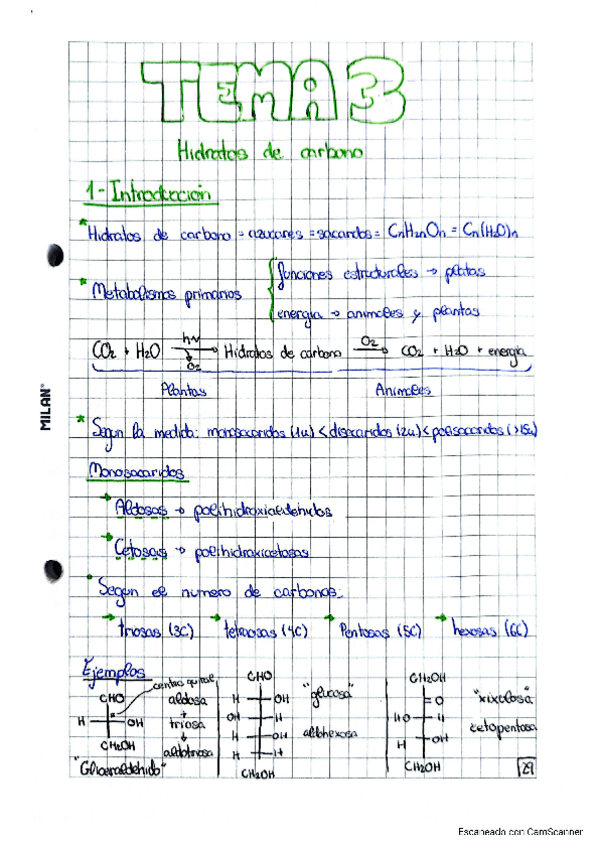 TEMA 3
Hidratos de carbono
1- Introducción
* Hidratos de carbono = azucares = sacaridos = CnH2nOn = Cn(H2O)n
* Metabolismos primarios { funciones estructurales → platas
energía → animales y plantas
CO2 + H2O hν → O2 Hidratos de carbono O2 → CO2 + H2O + energía
Plantas Animales
* Segun la medida: monosacaridos (1u) < disacaridos (2u) < polisacaridos (>15u)
Monosacaridos
→ Aldosas → polihidroxialdehidos
→ Cetosas → polihidroxicetosas
* Segun el numero de carbonos:
→ triosas (3C) → tetrosas (4C) → Pentosas (5C) → hexosas (6C)
Ejemplos
centro quiral
CHO aldosa
H * OH + triosa
CH2OH ↓ aldotriosa
"Gliceraldehido"
CHO
H OH "glucosa"
OH H
H OH aldohexosa
H H
CH2OH
CH2OH
=O "xixolosa"
HO H cetopentosa
H OH
CH2OH
29
MILAN
Escaneado con CamScanner